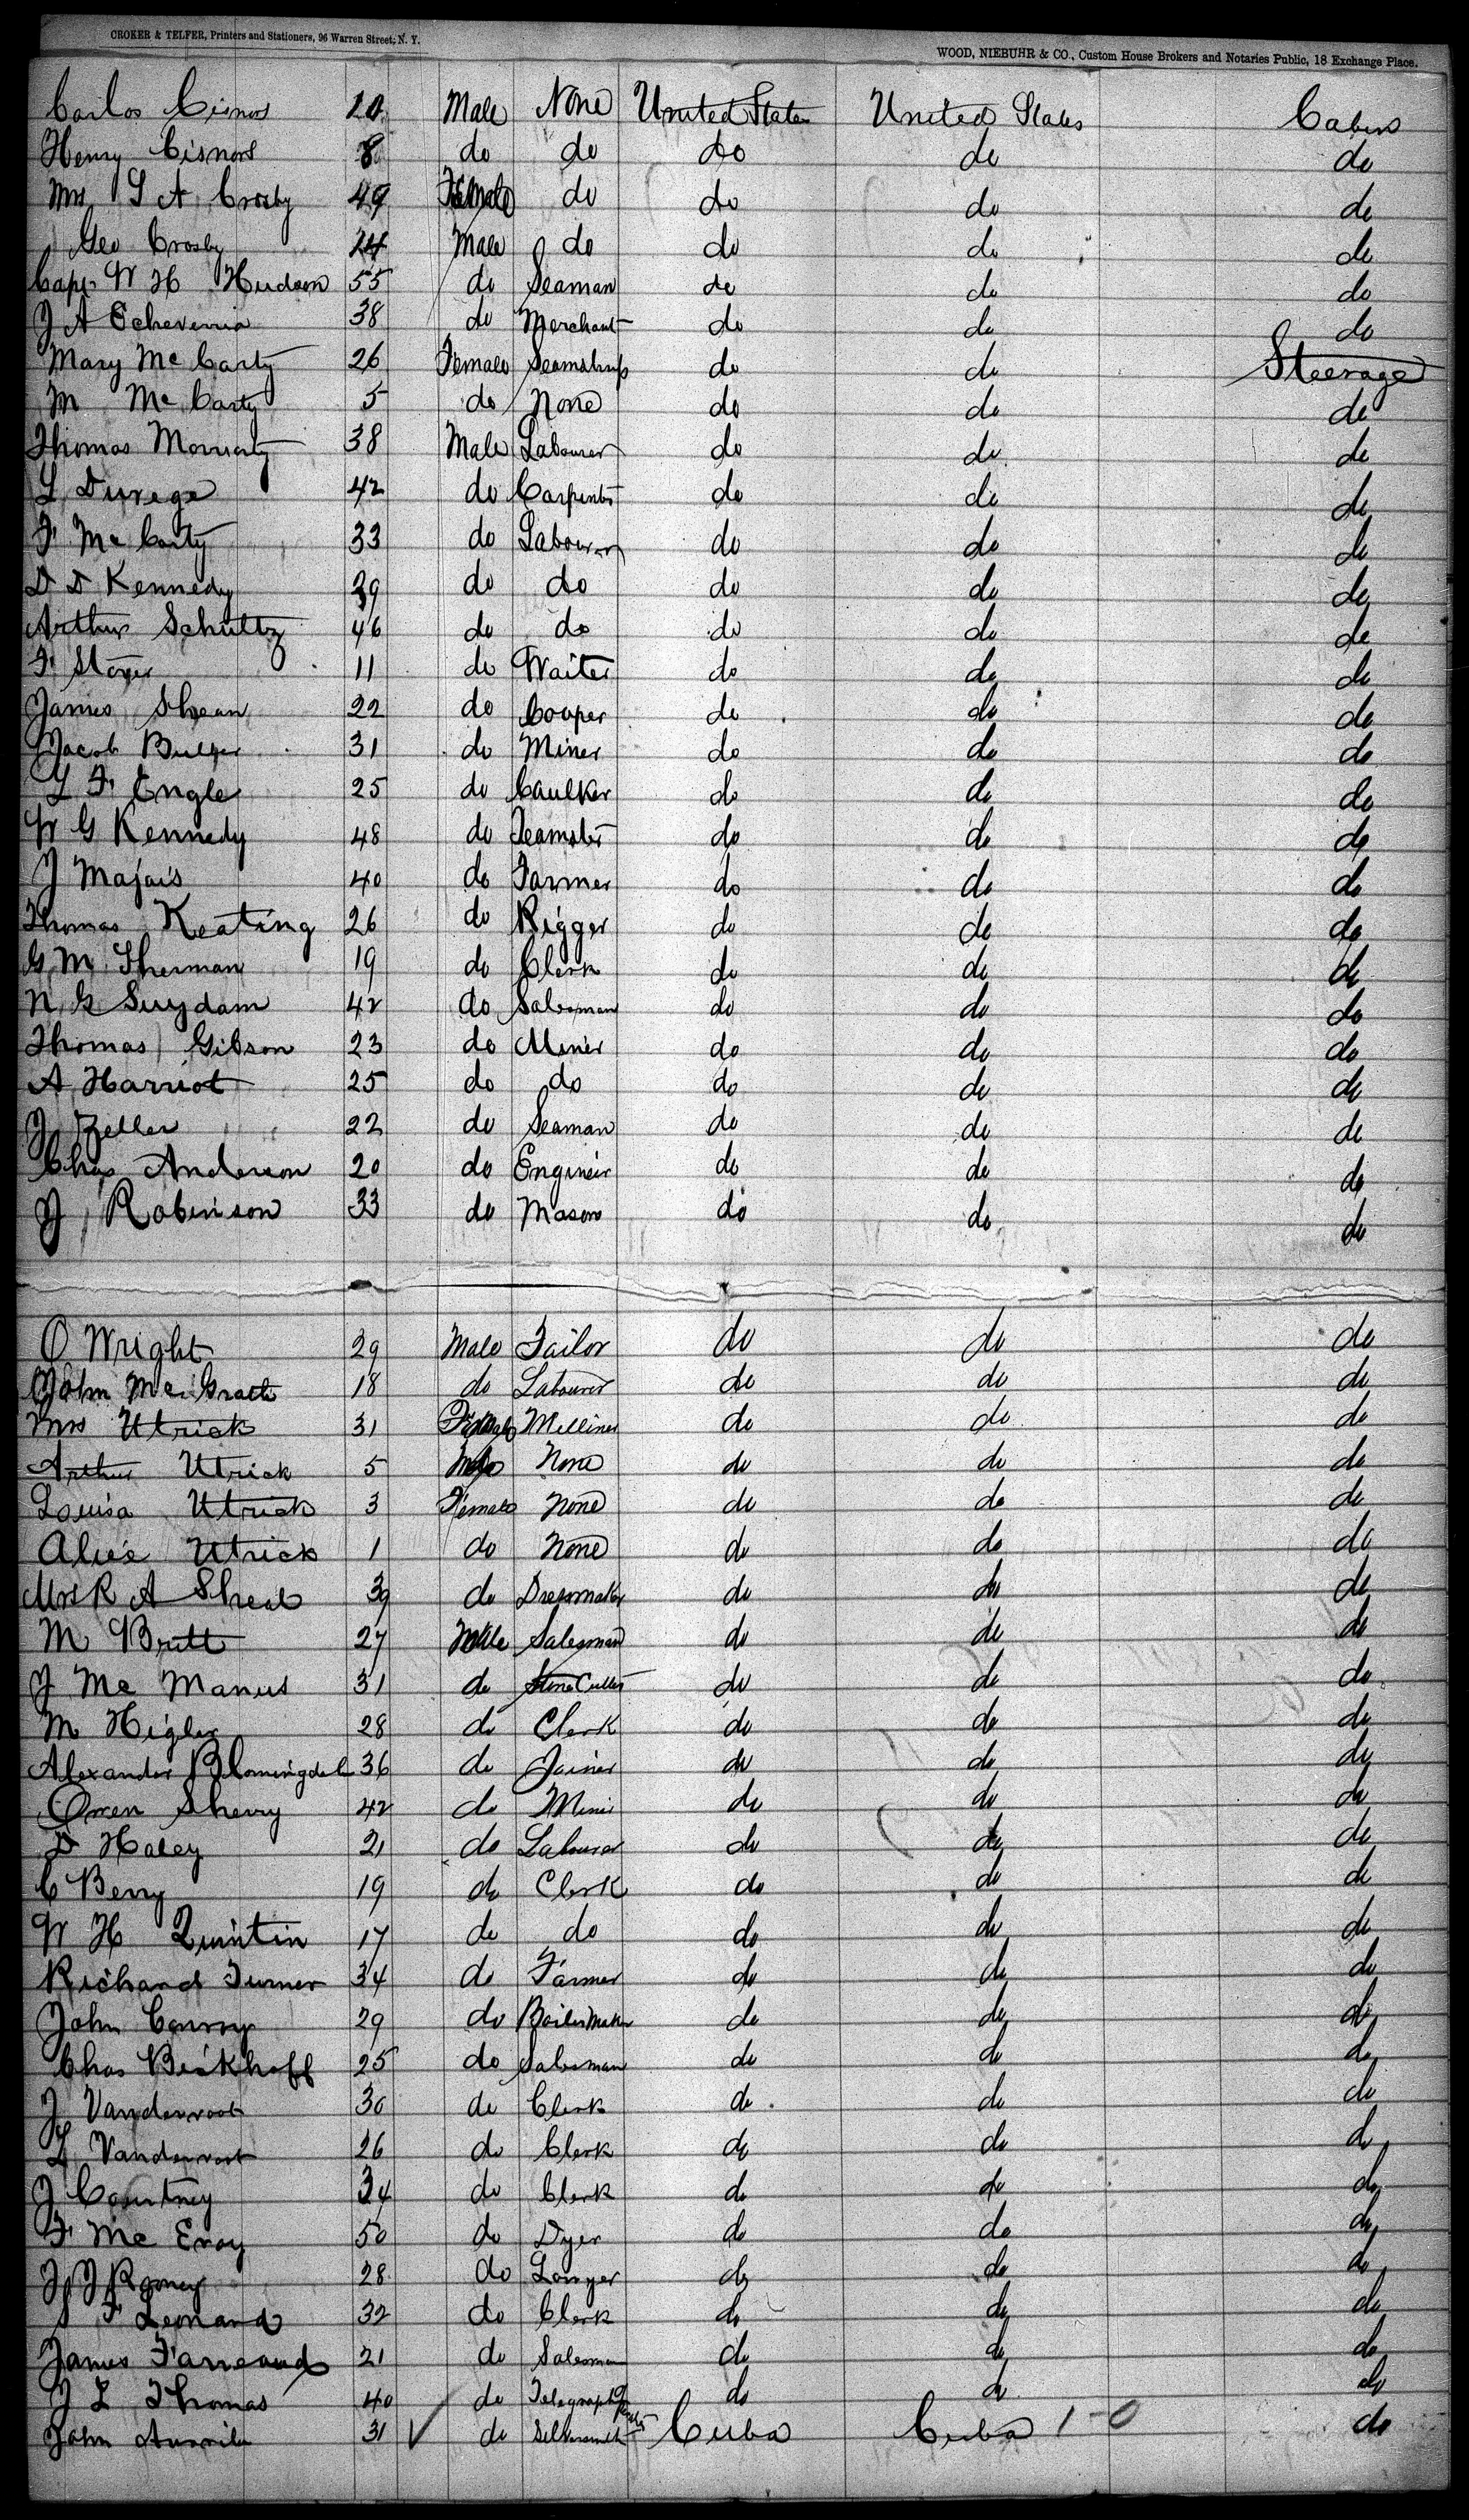 CROKER & TELFER, Printers and Stationers, 96 Warren Street, N. Y.
WOOD, NIEBUHR & CO., Custom House Brokers and Notaries Public, 18 Exchange Place.
Carlos Cisnos Male None United States United States Cabin
Henry Cisnos 8 do do do do do
Mrs S A Crosby 49 Female do do do do
Geo Crosby 24 Male do do do do
Capt W H Hudson 55 do Seaman do do do
J A Echeverria 38 do Merchant do do do
Mary Mc Carty 26 Female Seamstress do do Steerage
M Mc Carty 5 do None do do do
Thomas Moriarty 38 Male Labourer do do do
L Durege 42 do Carpenter do do do
F Mc Carty 33 do Labourer do do do
D D Kennedy 39 do do do do do
Arthur Schultz 46 do do do do do
F 11 do Waiter do do do
James Shean 22 do Cooper do do do
Jacob 31 do Miner do do do
L F Engle 25 do Caulker do do do
W G Kennedy 48 do Teamster do do do
J Majais 40 do Farmer do do do
Thomas Keating 26 do Rigger do do do
G M Sherman 19 do Clerk do do do
N G Suydam 42 do Salesman do do do
Thomas Gibson 23 do Miner do do do
A Harriot 25 do do do do do
J Zeller 22 do Seaman do do do
Chas Anderson 20 do Engineer do do do
J Robinson 33 do Mason do do do
O Wright 29 Male Tailor do do do
John Mc Grath 18 do Labourer do do do
Mrs Utrick 31 Female Milliner do do do
Arthur Utrick 5 Male None do do do
Louisa Utrick 3 Female None do do do
Alice Utrick 1 do None do do do
Mrs R A Sheal 39 do Dressmaker do do do
M Britt 27 Male Salesman do do do
J Mc Manus 31 do Stone Cutter do do do
M Higler 28 do Clerk do do do
Alexander Blomingdale 36 do Joiner do do do
Owen Sherry 42 do Miner do do do
D Haley 21 do Labourer do do do
C Berry 19 do Clerk do do do
W H Quintin 17 do do do do do
Richard Turner 34 do Farmer do do do
John Conroy 29 do Boiler Maker do do do
Chas Bickhoff 25 do Salesman do do do
J Vandervoort 30 do Clerk do do do
L Vandervoort 26 do Clerk do do do
J Courtney 34 do Clerk do do do
F Mc Evoy 50 do Dyer do do do
J J Rooney 28 do Lawyer do do do
S F Leonard 32 do Clerk do do do
James Farreaud 21 do Salesman do do do
J L Thomas 40 do Telegraph Operator do do do
John 31 do Silversmith Cuba Cuba 1-0 do